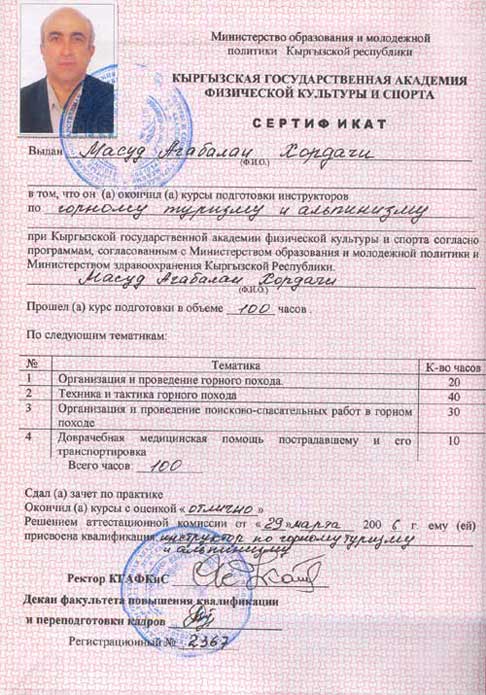 Министерство образования и молодежной
политики Кыргызской республики
КЫРГЫЗСКАЯ ГОСУДАРСТВЕННАЯ АКАДЕМИЯ
ФИЗИЧЕСКОЙ КУЛЬТУРЫ И СПОРТА
СЕРТИФИКАТ
Выдан Масуд Агабалаи Хордачи
(Ф.И.О.)
в том, что он (а) окончил (а) курсы подготовки инструкторов
по горному туризму и альпинизму
при Кыргызской государственной академии физической культуры и спорта согласно
программам, согласованным с Министерством образования и молодежной политики и
Министерством здравоохранения Кыргызской Республики.
Масуд Агабалаи Хордачи
(Ф.И.О.)
Прошел (а) курс подготовки в объеме 100 часов .
По следующим тематикам:
№ Тематика К-во часов
1 Организация и проведение горного похода. 20
2 Техника и тактика горного похода 40
3 Организация и проведение поисково-спасательных работ в горном 30
походе
4 Доврачебная медицинская помощь пострадавшему и его 10
транспортировка
Всего часов 100
Сдал (а) зачет по практике
Окончил (а) курсы с оценкой « отлично »
Решением аттестационной комиссии от « 29 » марта 200 6 г. ему (ей)
присвоена квалификация инструктор по горному туризму
и альпинизму
Ректор КГАФКиС
Декан факультета повышения квалификации
и переподготовки кадров
Регистрационный № 2367